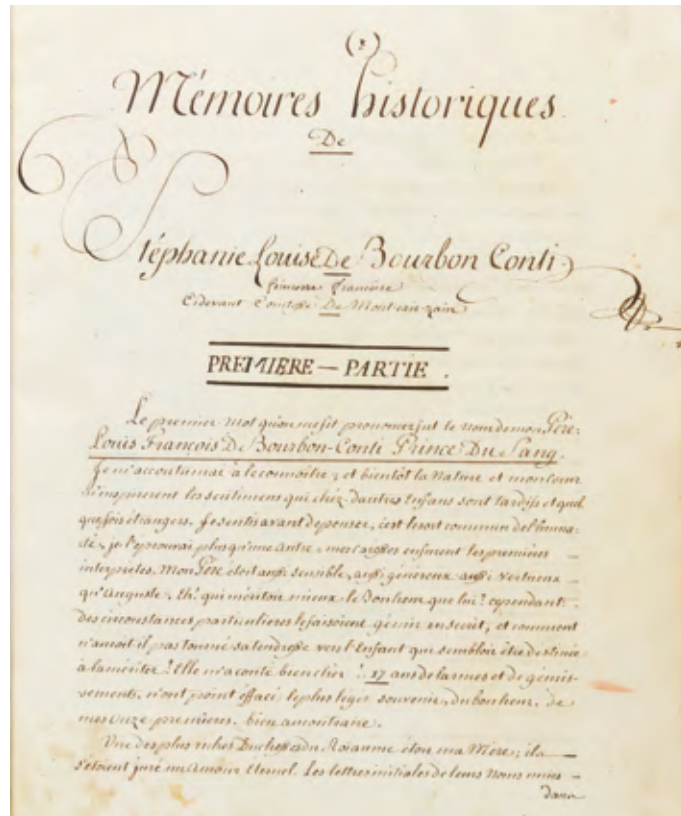 (1)
Mémoires historiques
De
Stéphanie Louise De Bourbon Conti
Princesse Françoise
Cidevant Comtesse De Mont-cair-zain
PREMIERE — PARTIE .
Le premier mot qu'on me fit prononcer fut le nom de mon Père:
Louis François De Bourbon-Conti Prince Du Sang.
Je m'accoutumai à le connoître, et bientôt la Nature et mon Cœur
m'inspirerent les sentimens qui chéz d'autres Enfans sont tardifs et quel
quefois étrangers. Je sentis avant de penser, c'est le sort commun de l'huma-
té, je l'éprouvai plus qu'une autre, mes caresses en furent les premieres —
interpretes. Mon Père étoit aussi sensible, aussi généreux aussi vertueux —
qu'Auguste, Eh! qui méritoit mieux le Bonheur que lui? cependant
des circonstances particulieres le faisoient gémir en secret, et comment
n'auroit il pas tourné sa tendresse vers l'Enfant qui sembloit être destinée
à la mériter? Elle m'a conté bien cher! 17 ans de larmes et de gémis-
sements, n'ont point éffacé le plus léger souvenir, du bonheur de
mes onze premières, bien au contraire.
Une des plus riches Duchesses du Roiaume étoit ma Mère; ils —
s'étoient juré un Amour Eternel. Les lettres initiales de leurs Noms unies —
dans